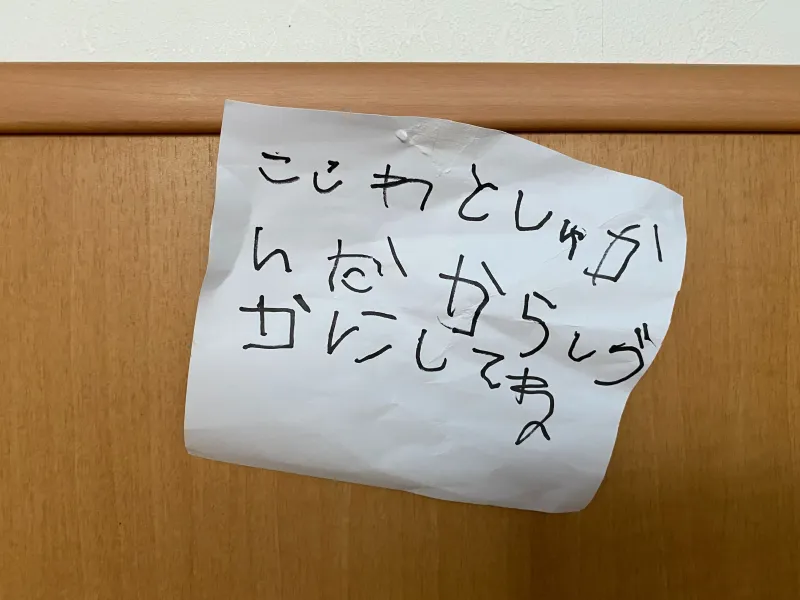 ここわとしゅか
んなかからしづ
かにしてね